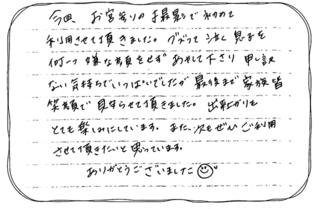 今回 お宮参りの撮影で初めて
利用させて頂きました。グズってしまう息子を
何一つ嫌な顔をせず あやして下さり 申し訳
ない気持ちでいっぱいでしたが 最後まで家族皆
笑顔で 見守らせて頂きました。出来上がりも
とても楽しみにしています。また、次もぜひご利用
させて頂きたいと思っています。
ありがとうございました